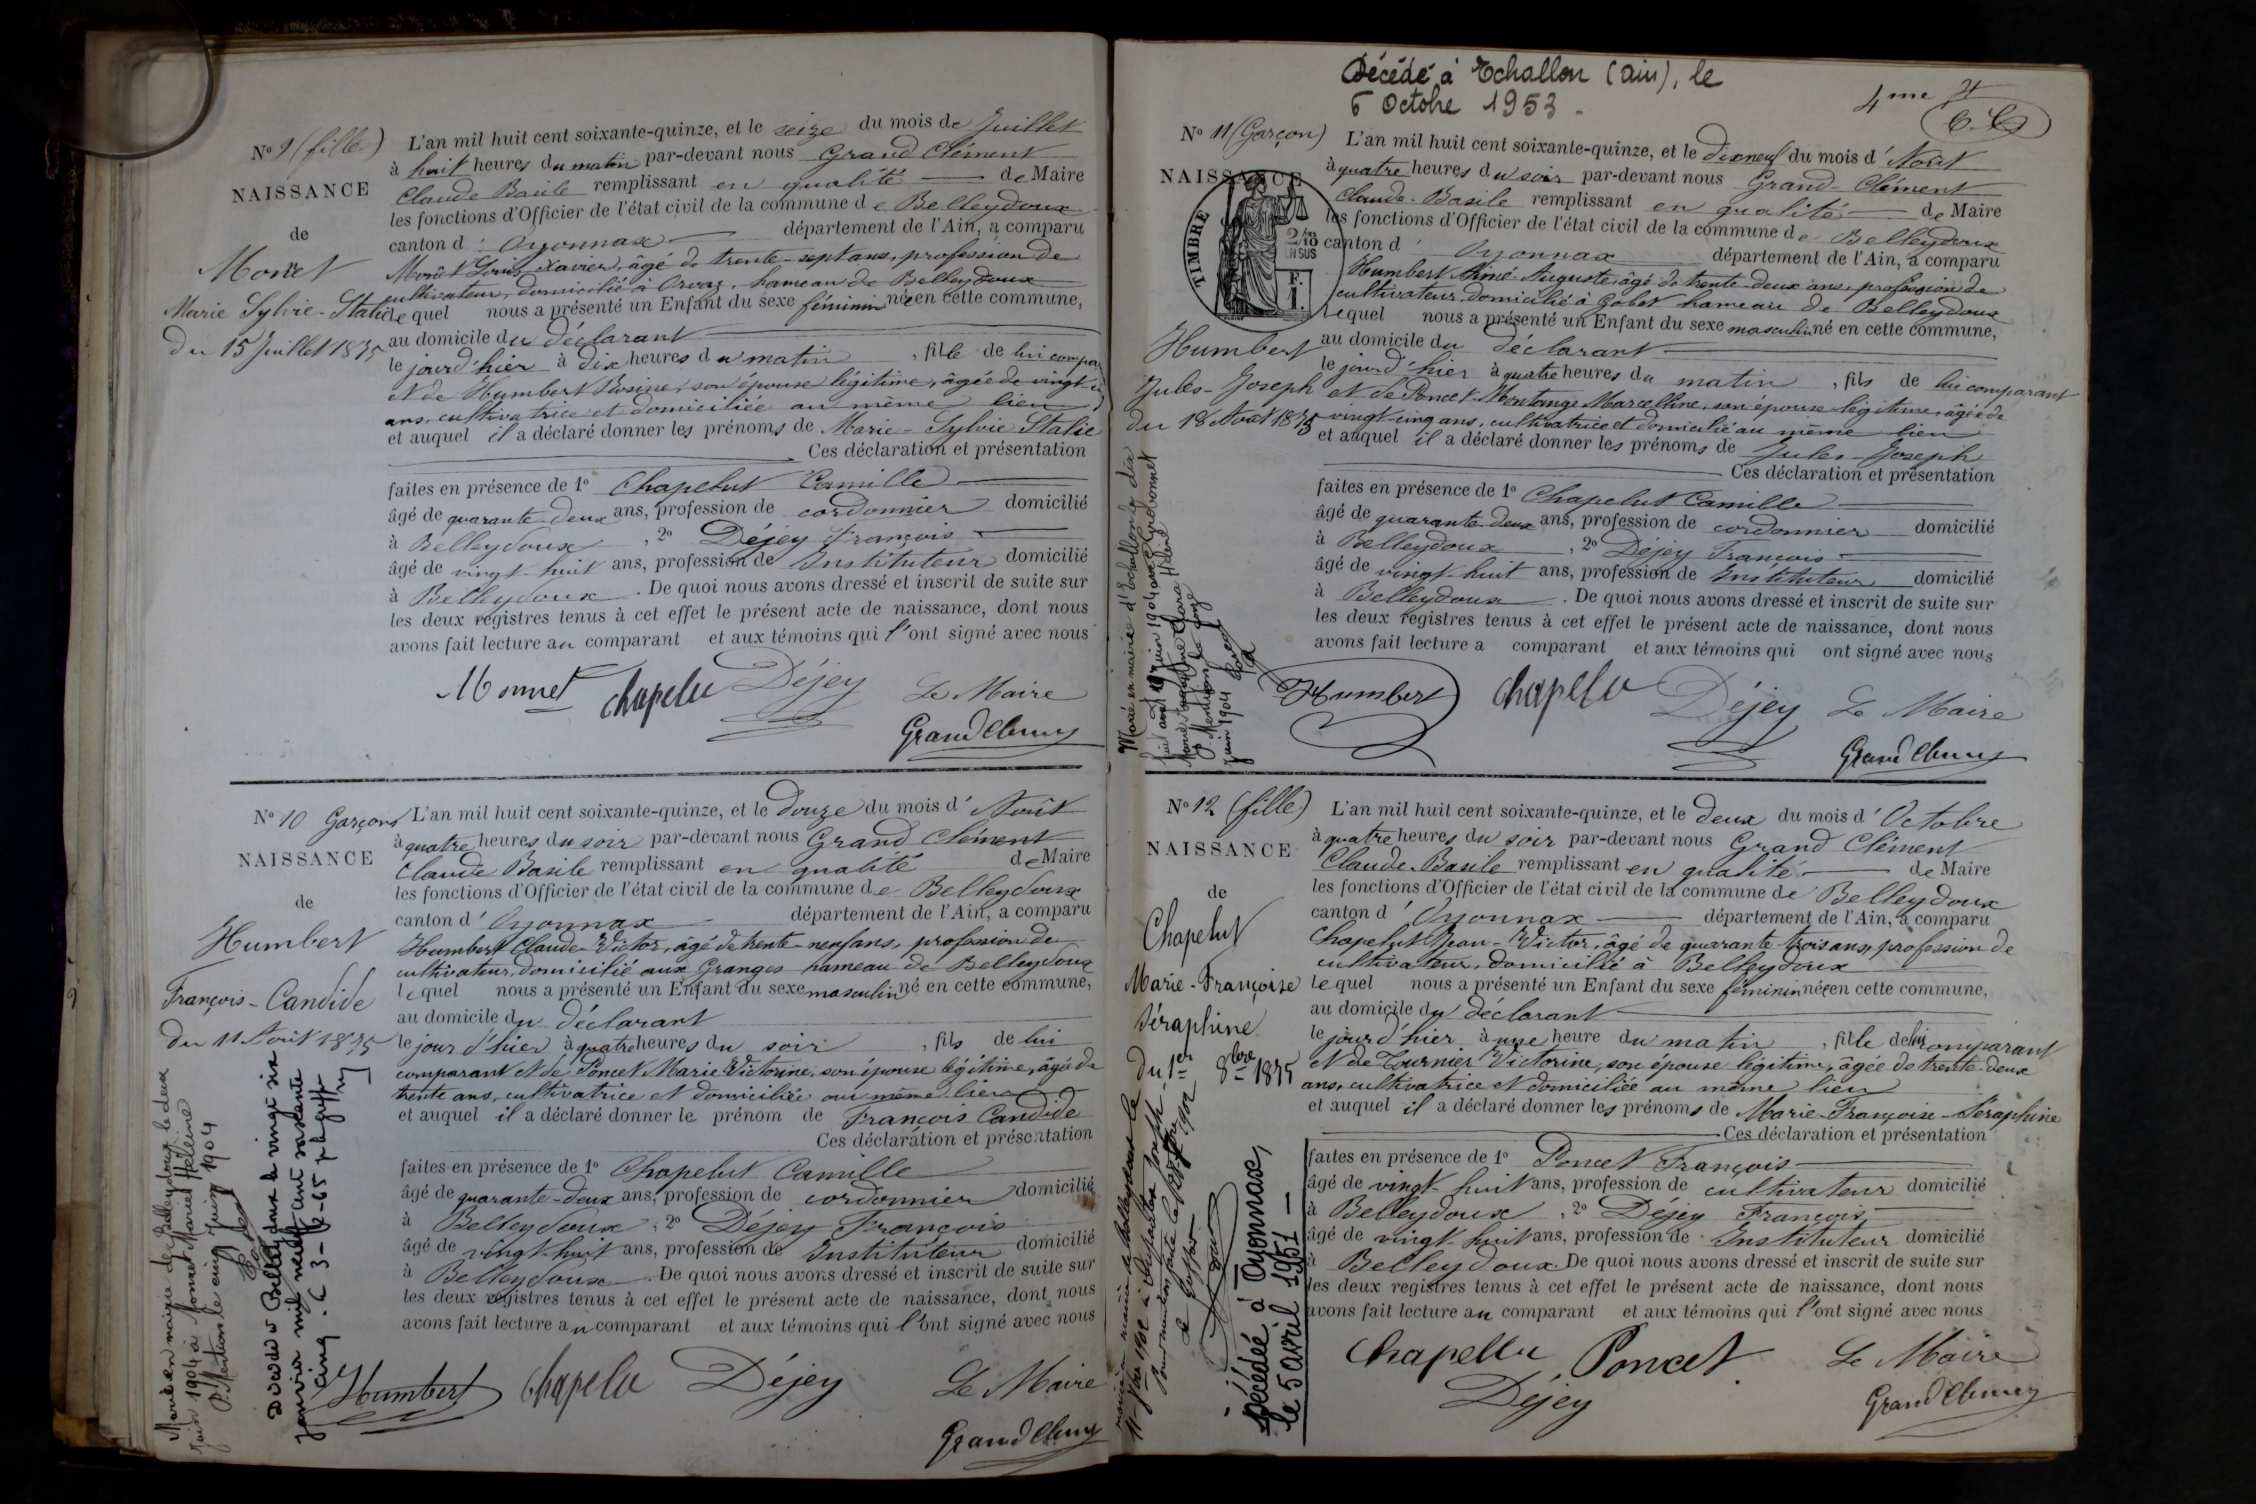 N° 9 (fille)
NAISSANCE
de
Monet
Marie Sylvie-Stalie
du 15 Juillet 1875
L'an mil huit cent soixante-quinze, et le seize du mois de Juillet
à huit heures du matin par-devant nous Grand Clément
Claude Basile remplissant en qualité de Maire
les fonctions d'Officier de l'état civil de la commune de Belleydoux
canton d' Oyonnax département de l'Ain, a comparu
Louis Xavier, âgé de trente-sept ans, profession de
cultivateur, domicilié à Orvaz, hameau de Belleydoux
lequel nous a présenté un Enfant du sexe féminin née en cette commune,
au domicile du déclarant
le jour d'hier à dix heures du matin, fille de lui compa
et de Humbert Rosine, son épouse légitime, âgée de vingt
ans, cultivatrice et domiciliée au même lieu
et auquel il a déclaré donner les prénoms de Marie-Sylvie Stalie
Ces déclaration et présentation
faites en présence de 1° Chapelut Camille
âgé de quarante-deux ans, profession de cordonnier domicilié
à Belleydoux, 2° Déjey François
âgé de vingt-huit ans, profession de Instituteur domicilié
à Belleydoux. De quoi nous avons dressé et inscrit de suite sur
les deux registres tenus à cet effet le présent acte de naissance, dont nous
avons fait lecture au comparant et aux témoins qui l'ont signé avec nous
Monnet Chapelu Déjey Le Maire
Grand Clément
N° 10 Garçon
NAISSANCE
de
Humbert
François-Candide
du 11 Août 1875
L'an mil huit cent soixante-quinze, et le douze du mois d' Août
à quatre heures du soir par-devant nous Grand Clément
Claude Basile remplissant en qualité de Maire
les fonctions d'Officier de l'état civil de la commune de Belleydoux
canton d' Oyonnax département de l'Ain, a comparu
Humbert Claude-Victor, âgé de trente neuf ans, profession de
cultivateur, domicilié aux Granges hameau de Belleydoux
lequel nous a présenté un Enfant du sexe masculin né en cette commune,
au domicile du déclarant
le jour d'hier à quatre heures du soir, fils de lui
comparant et de Poncet Marie Victorine, son épouse légitime, âgée de
trente ans, cultivatrice et domiciliée au même lieu
et auquel il a déclaré donner le prénom de François Candide
Ces déclaration et présentation
faites en présence de 1° Chapelut Camille
âgé de quarante-deux ans, profession de cordonnier domicilié
à Belleydoux, 2° Déjey François
âgé de vingt-huit ans, profession de Instituteur domicilié
à Belleydoux. De quoi nous avons dressé et inscrit de suite sur
les deux registres tenus à cet effet le présent acte de naissance, dont nous
avons fait lecture au comparant et aux témoins qui l'ont signé avec nous
Humbert Chapelu Déjey Le Maire
Grand Clément
Marié en mairie de Belleydoux le deux
Juin 1904 à Monnet Marie
P. Mention le cinq Juin 1904
Décédé à Belleydoux le vingt six
janvier mil neuf cent soixante
cinq. le 3-2-65
Décédé à Echallon (Ain), le
6 Octobre 1953
4me
N° 11 (Garçon)
NAISSANCE
TIMBRE
2/10
EN SUS
Humbert
Jules-Joseph
du 18 Août 1875
L'an mil huit cent soixante-quinze, et le dixneuf du mois d' Août
à quatre heures du soir par-devant nous Grand-Clément
Claude-Basile remplissant en qualité de Maire
les fonctions d'Officier de l'état civil de la commune de Belleydoux
canton d' Oyonnax département de l'Ain, a comparu
Humbert Aimé Auguste, âgé de trente-deux ans, profession de
cultivateur domicilié à Gobet hameau de Belleydoux
lequel nous a présenté un Enfant du sexe masculin né en cette commune,
au domicile du déclarant
le jour d'hier à quatre heures du matin, fils de lui comparant
et de Poncet-Montange Marcelline, son épouse légitime, âgée de
vingt-cinq ans, cultivatrice et domicilié au même lieu
et auquel il a déclaré donner les prénoms de Jules-Joseph
Ces déclaration et présentation
faites en présence de 1° Chapelut Camille
âgé de quarante-deux ans, profession de cordonnier domicilié
à Belleydoux, 2° Déjey François
âgé de vingt-huit ans, profession de Instituteur domicilié
à Belleydoux. De quoi nous avons dressé et inscrit de suite sur
les deux registres tenus à cet effet le présent acte de naissance, dont nous
avons fait lecture a comparant et aux témoins qui ont signé avec nous
Humbert Chapelu Déjey Le Maire
Grand Clément
Marié en mairie d'Echallon le dix
juin 1904 avec
P. Mention, le onze
Juin 1904
N° 12 (fille)
NAISSANCE
de
Chapelut
Marie-Françoise
Séraphine
du 1er 8bre 1875
L'an mil huit cent soixante-quinze, et le deux du mois d' Octobre
à quatre heures du soir par-devant nous Grand Clément
Claude-Basile remplissant en qualité de Maire
les fonctions d'Officier de l'état civil de la commune de Belleydoux
canton d' Oyonnax département de l'Ain, a comparu
Chapelut Jean-Victor, âgé de quarante-trois ans, profession de
cultivateur, domicilié à Belleydoux
lequel nous a présenté un Enfant du sexe féminin née en cette commune,
au domicile du déclarant
le jour d'hier à une heure du matin, fille de lui comparant
et de Tournier Victorine, son épouse légitime, âgée de trente-deux
ans, cultivatrice et domiciliée au même lieu
et auquel il a déclaré donner les prénoms de Marie-Françoise-Séraphine
Ces déclaration et présentation
faites en présence de 1° Poncet François
âgé de vingt-huit ans, profession de cultivateur domicilié
à Belleydoux, 2° Déjey François
âgé de vingt-huit ans, profession de Instituteur domicilié
à Belleydoux De quoi nous avons dressé et inscrit de suite sur
les deux registres tenus à cet effet le présent acte de naissance, dont nous
avons fait lecture au comparant et aux témoins qui l'ont signé avec nous
Chapellu Poncet Le Maire
Déjey Grand Clément
Décédée à Oyonnax,
le 5 avril 1951